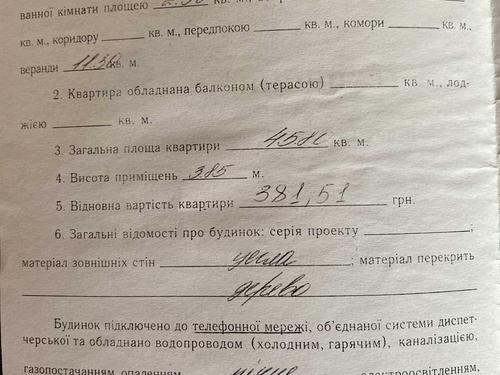 ванної кімнати площею 2.90 кв. м,
кв. м, коридору ______ кв. м., передпокою ______ кв. м., комори ______ кв. м.,
веранди 11.30 кв. м.
2. Квартира обладнана балконом (терасою) ______ кв. м., лод-
жією ______ кв. м.
3. Загальна площа квартири 45.80 кв. м.
4. Висота приміщень 3.85 м.
5. Відновна вартість квартири 381,51 грн.
6. Загальні відомості про будинок: серія проекту ______;
матеріал зовнішніх стін цегла; матеріал перекрить
дерево
Будинок підключено до телефонної мережі, об'єднаної системи диспет-
черської та обладнано водопроводом (холодним, гарячим), каналізацією,
газопостачанням, опаленням пічне електроосвітленням,